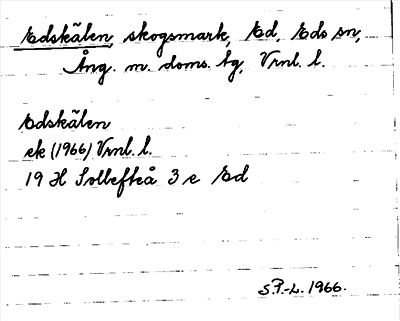 Edskälen, skogsmark, Ed, Eds sn,
Ång. m. doms. tg, Vrnl. l.
Edskälen
ek (1966) Vrnl. l.
19 H Sollefteå 3 e Ed
S.P.-L. 1966.